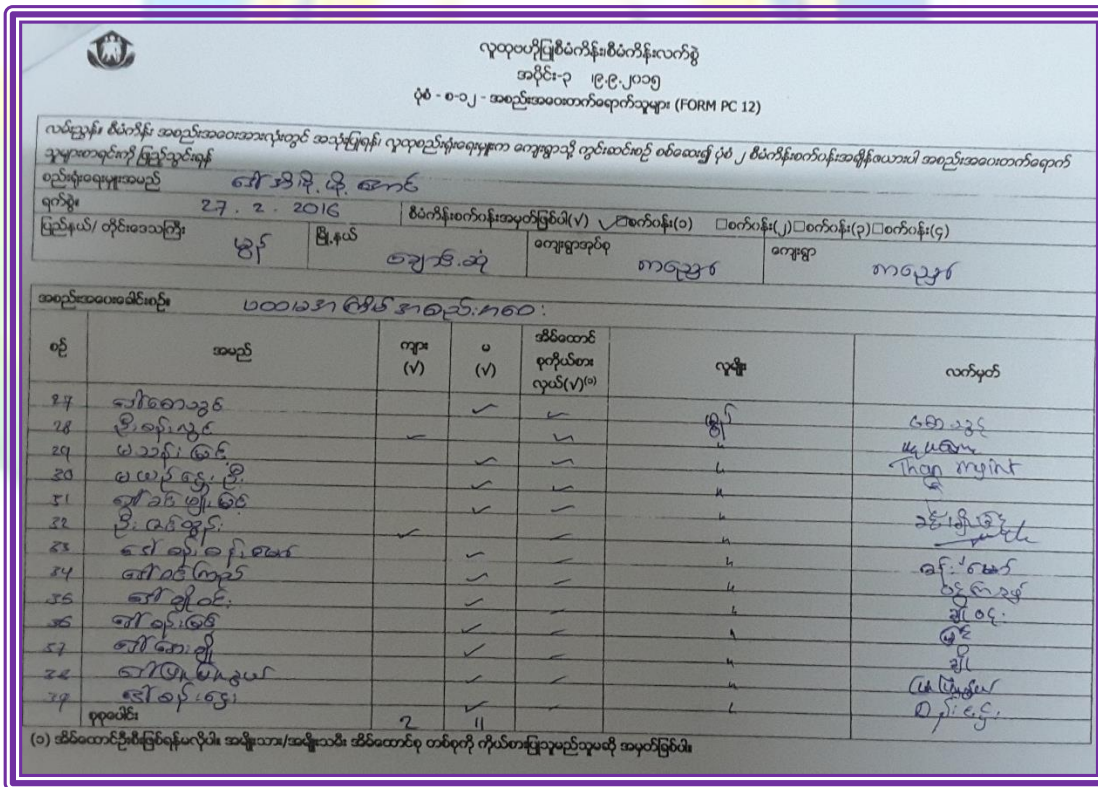 လူထုဗဟိုပြုစီမံကိန်း၊စီမံကိန်းလက်စွဲ
အပိုင်း-၃ ၊၉.၉.၂၀၁၅
ပုံစံ - စ-၁၂ - အစည်းအဝေးတက်ရောက်သူများ (FORM PC 12)
လမ်းညွှန်။ စီမံကိန်း အစည်းအဝေးအားလုံးတွင် အသုံးပြုရန်၊ လူထုစည်းရုံးရေးမှူးက ကျေးရွာသို့ ကွင်းဆင်းစဉ် စစ်ဆေး၍ ပုံစံ ၂ စီမံကိန်းစက်ဝန်းအချိန်ဇယားပါ အစည်းအဝေးတက်ရောက်
သူများစာရင်းကို ဖြည့်သွင်းရန်
စည်းရုံးရေးမှူးအမည် ဒေါ်အိအိဖြိုးအောင်
ရက်စွဲ။ 27.2.2016 စီမံကိန်းစက်ဝန်းအမှတ်ခြစ်ပါ(√) ✓□စက်ဝန်း(၁) □စက်ဝန်း(၂)□စက်ဝန်း(၃)□စက်ဝန်း(၄)
ပြည်နယ်/ တိုင်းဒေသကြီး မွန် မြို့နယ် ချောင်းဆုံ ကျေးရွာအုပ်စု ကညော ကျေးရွာ ကညော
အစည်းအဝေးခေါင်းစဉ်။ ပထမအကြိမ်အစည်းအဝေး
စဉ် အမည် ကျား (√) မ (√) အိမ်ထောင်စုကိုယ်စားလှယ်(√)(၁) လူမျိုး လက်မှတ်
27 ✓ ✓ မွန်
28 ဦးစန်းလွင် ✓ ✓ "
29 မသန်းမြင့် ✓ ✓ " Than myint
30 ✓ ✓ "
31 ဒေါ်ခင်မျိုးမြင့် ✓ ✓ "
32 ✓ ✓ "
33 ✓ ✓ "
34 ဒေါ်ဝင်းကြည် ✓ ✓ "
35 ဒေါ်ချိုဝင်း ✓ ✓ " ချိုဝင်း
36 ဒေါ်စန်းမြင့် ✓ ✓ " မြင့်
37 ဒေါ်အေးချို ✓ ✓ " ချို
38 ✓ ✓ "
39 ဒေါ်စန်းဌေး ✓ ✓ " စန်းဌေး
စုစုပေါင်း 2 11
(၁) အိမ်ထောင်ဦးစီးဖြစ်ရန်မလိုပါ။ အမျိုးသား/အမျိုးသမီး အိမ်ထောင်စု တစ်စုကို ကိုယ်စားပြုသူမည်သူမဆို အမှတ်ခြစ်ပါ။